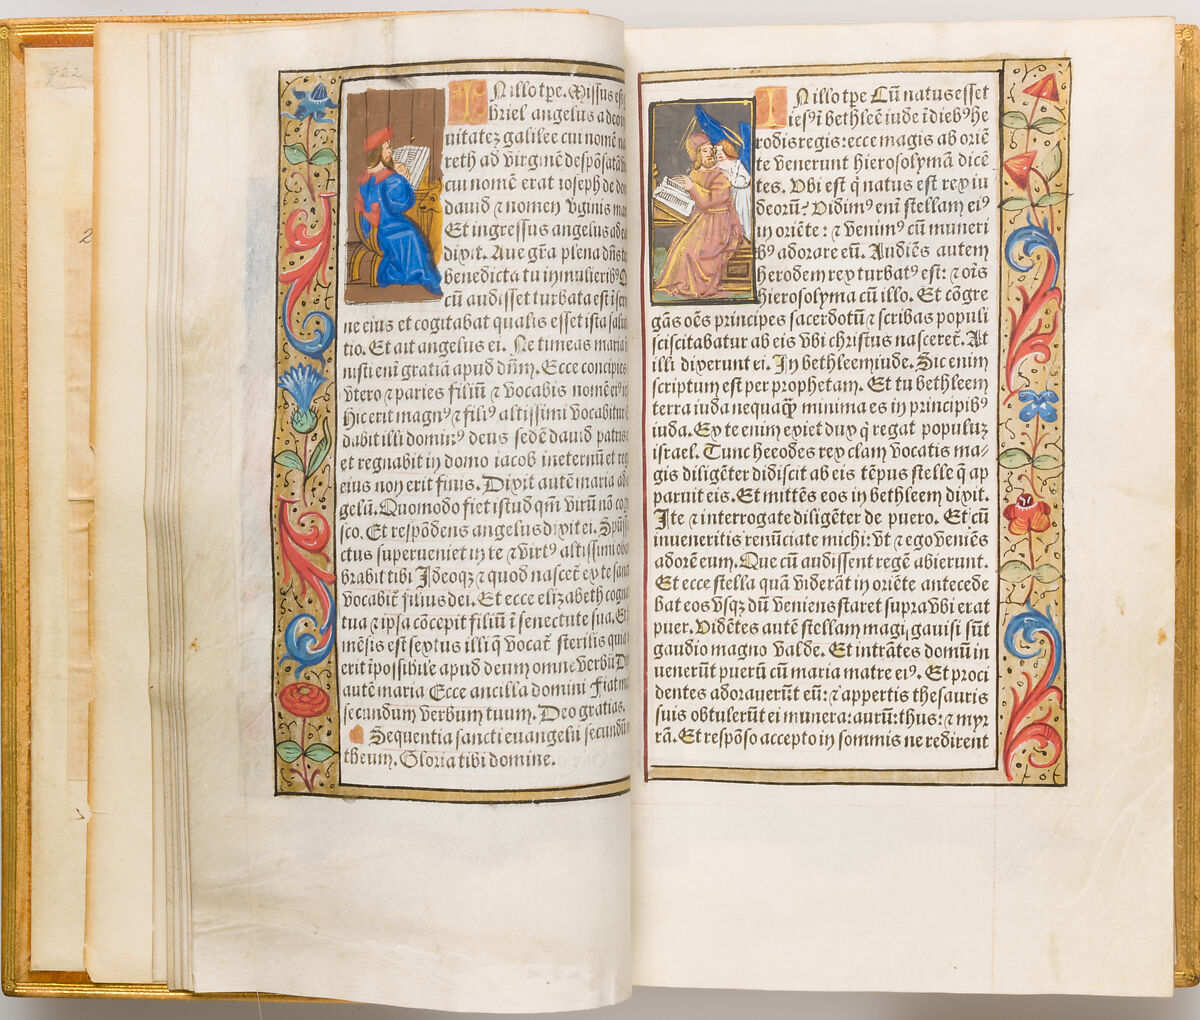 922
2
IN illo tp̄e. Missus est
briel angelus a deo
uitatez galilee cui nomē na
reth ad virginē despōsatā
cui nomē erat ioseph de do
dauid ⁊ nomen v̓ginis ma
Et ingressus angelus ad ea
dixit. Aue gr̄a plena dn̄s te
benedicta tu in mulierib⁹
cū audisset turbata est ī ser
ne eius et cogitabat qualis esset ista salu
tio. Et ait angelus ei. Ne timeas maria
nisti enī gratiā apud dn̄m. Ecce concipies
vtero ⁊ paries filiū ⁊ vocabis nomē ei⁹
Hic erit magn⁹ ⁊ fili⁹ altissimi vocabitur
dabit illi domin⁹ deus sedē dauid patris
et regnabit in domo iacob in eternū et reg
eius non erit finis. Dixit autē maria ad
gelū. Quomodo fiet istud qm̄ virū nō co
sco. Et respōdens angelus dixit ei. Sp̄ūs
ctus superueniet in te ⁊ virt⁹ altissimi obū
brabit tibi Ideoqz ⁊ quod nascet̄ ex te sanc
vocabit̄ filius dei. Et ecce elizabeth cogna
tua ⁊ ipsa cōcepit filiū ī senectute sua. Et
mēsis est sextus illi q̄ vocat̄ sterilis quia
erit īpossibile apud deum omne verbū Di
autē maria Ecce ancilla domini fiat mi
secundum verbum tuum. Deo gratias.
Sequentia sancti euangelii secundū
theum. Gloria tibi domine.
IN illo tp̄e Cū natus esset
ies⁹ ī bethleē iude ī dieb⁹ he
rodis regis: ecce magis ab oriē
te venerunt hierosolymā dicē
tes. Vbi est q̄ natus est rex iu
deorū? vidim⁹ enī stellam ei⁹
in oriēte: ⁊ venim⁹ cū muneri
b⁹ adorare eū. Audiēs autem
herodem rex turbat⁹ est: ⁊ oīs
hierosolyma cū illo. Et cōgre
gās oēs principes sacerdotū ⁊ scribas populi
sciscitabatur ab eis vbi christus nasceret̄. At
illi dixerunt ei. In bethleem iude. Sic enim
scriptum est per prophetam. Et tu bethleem
terra iuda nequaq̄ minima es in principib⁹
iuda. Ex te enim exiet dux q̄ regat populuz
israel. Tunc heeodes rex clam vocatis ma-
gis diligēter didiscit ab eis tēpus stelle q̄ ap
paruit eis. Et mittēs eos in bethleem dixit.
Ite ⁊ interrogate diligēter de puero. Et cū
inueneritis renūciate michi: vt ⁊ ego veniēs
adorē eum. Que cū audissent regē abierunt.
Et ecce stella quā viderāt in oriēte antecede
bat eos vsqz dū veniens staret supra vbi erat
puer. Vidētes autē stellam magi, gauisi sūt
gaudio magno valde. Et intrātes domū in
uenerūt puerū cū maria matre ei⁹. Et proci
dentes adorauerūt eū: ⁊ appertis thesauris
suis obtulerūt ei munera: aurū: thus: ⁊ myr
rā. Et respōso accepto in sommis ne redirent